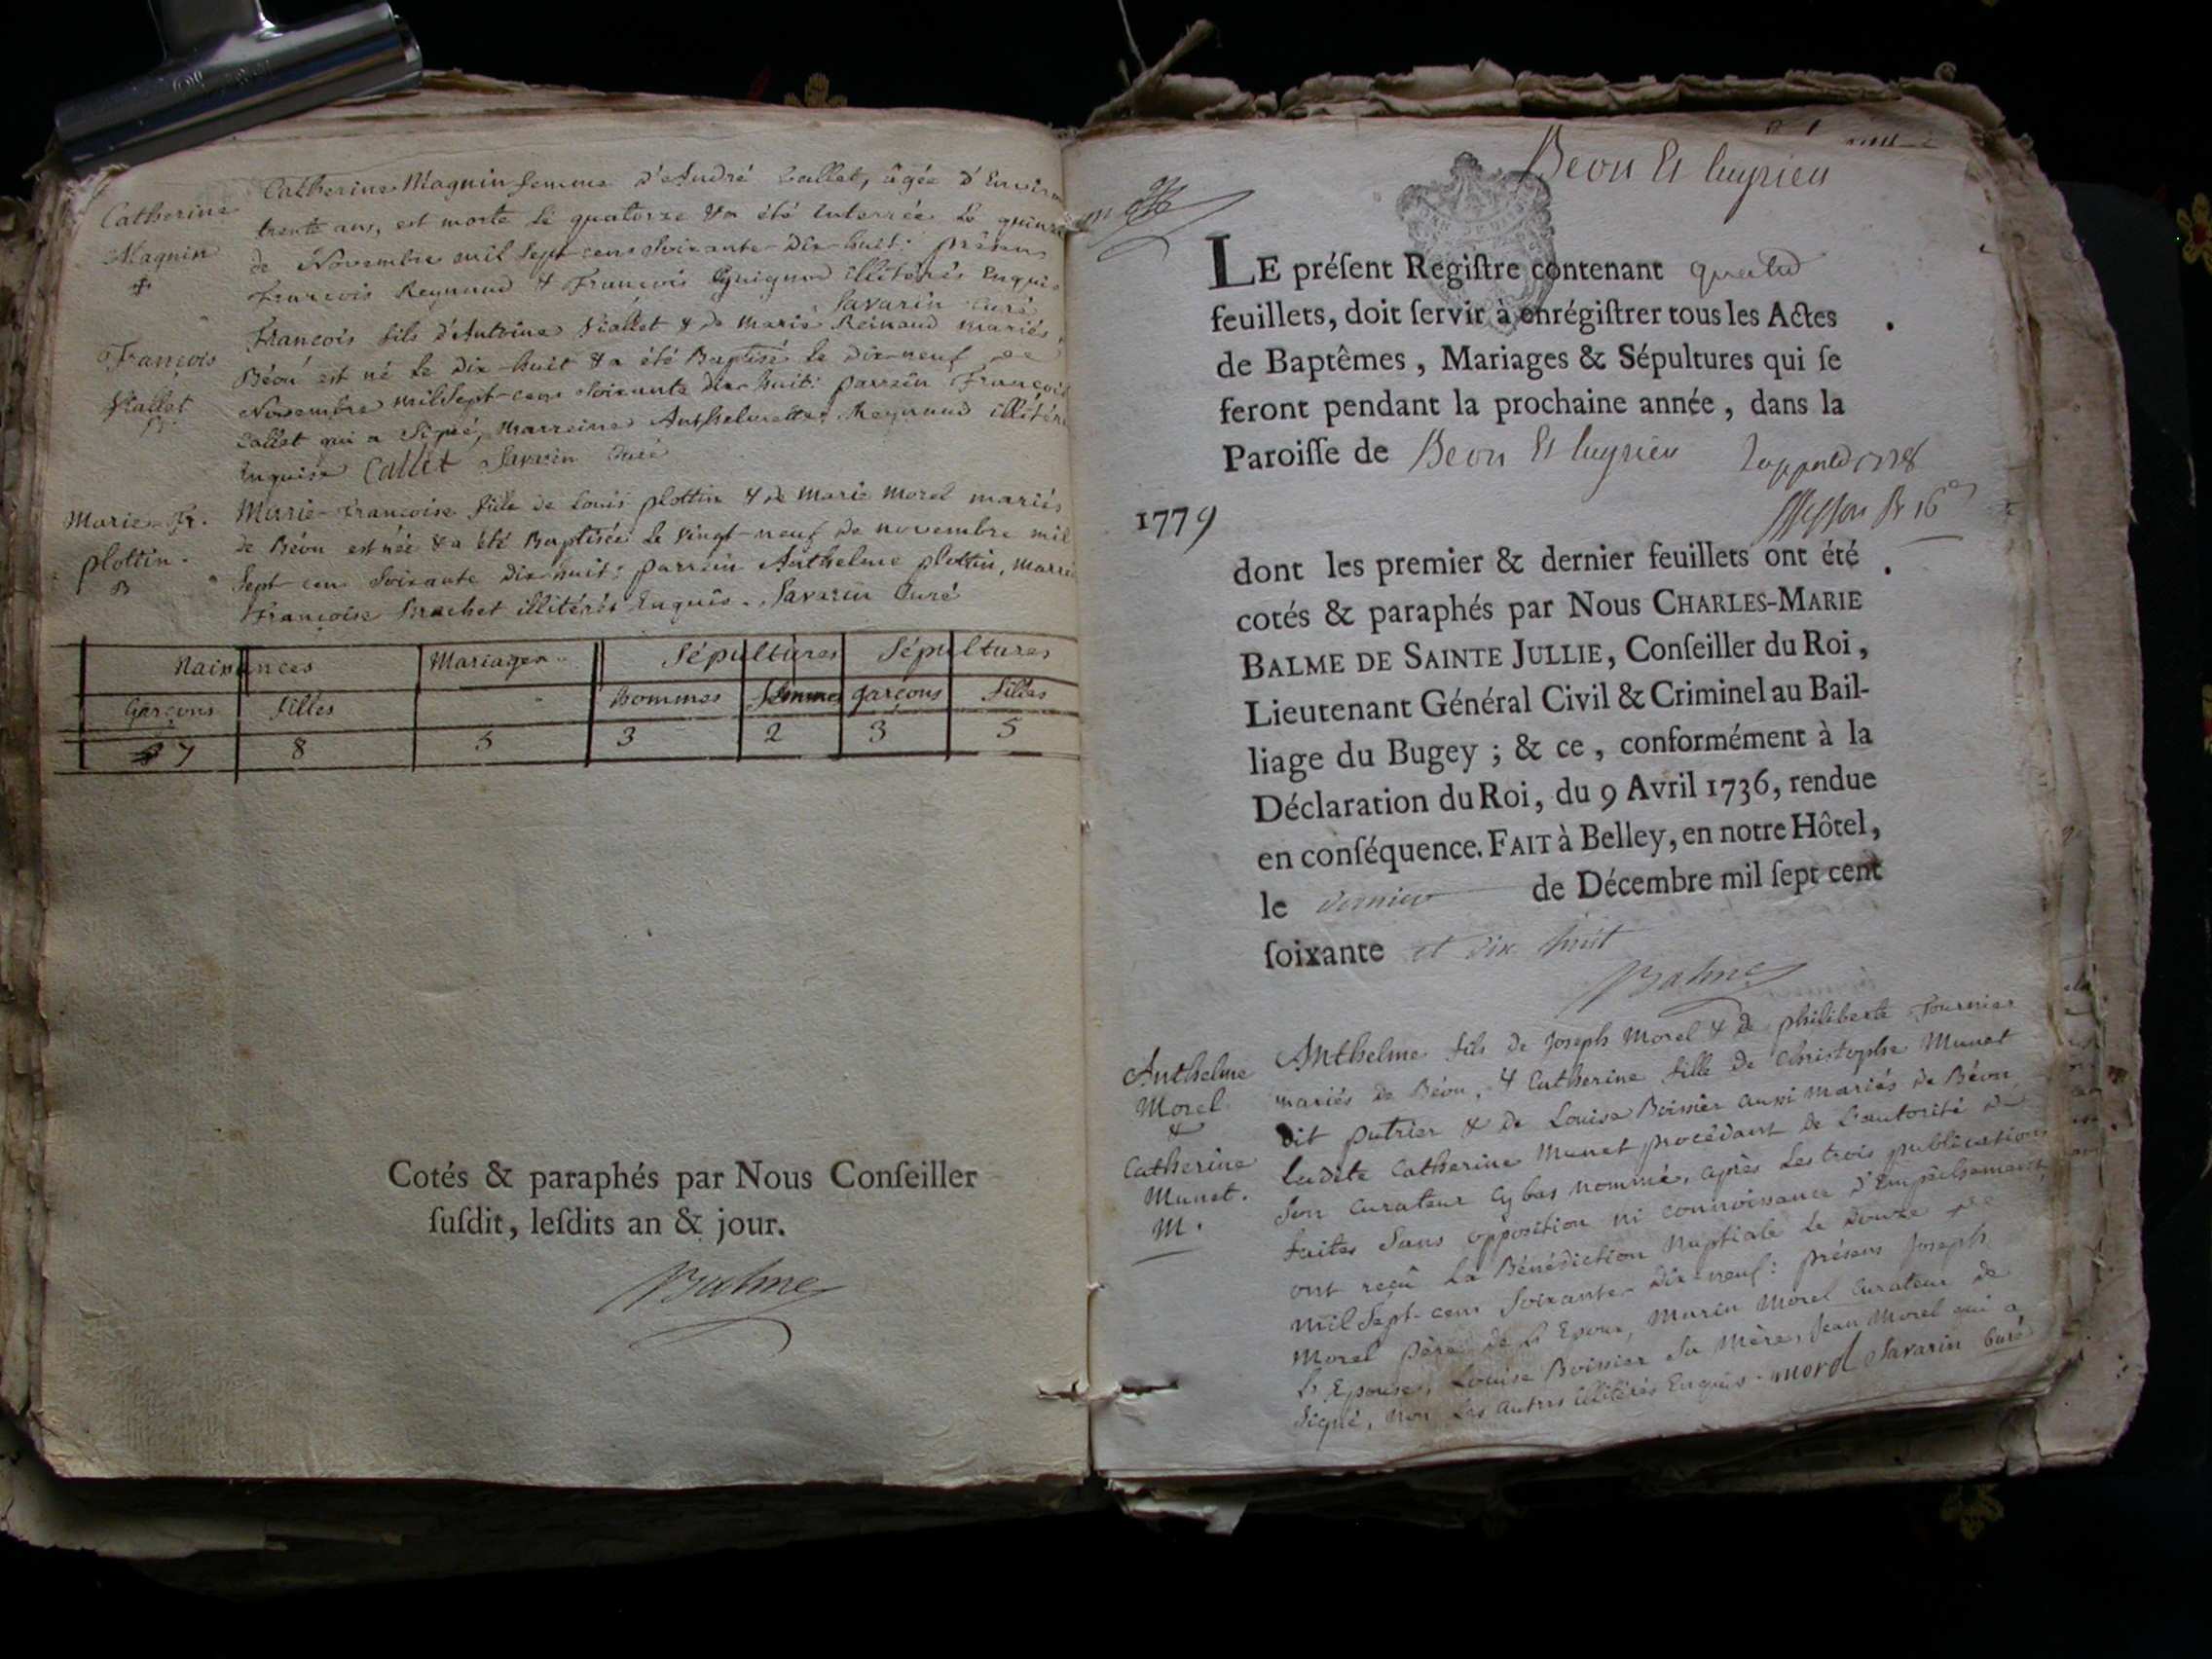 Catherine
Magnin
+
Catherine Magnin femme d'André Callet, âgée d'Environ
trente ans, est morte le quatorze & a été Enterrée le quinze
de Novembre mil Sept-cens soixante-dix-huit: présens
François Reynaud & François Guignod illitérés Enquis
Savarin Curé
François
Viallet
François fils d'Antoine Viallet & de Marie Reinaud mariés
Béon est né le dix-huit & a été Baptisé le dix-neuf de
Novembre mil Sept-cens Soixante dix-huit: parrain François
Callet qui a Signé, Marreine Anthelmette Reynaud illitérée
Enquise Callet Savarin Curé
Marie-Fr.
plottin.
B
Marie-Françoise fille de Louis plottin & de Marie Morel mariés
de Béon est née & a été Baptisée le vingt-neuf de novembre mil
Sept-cens Soixante dix-huit: parrain Anthelme plottin, Marreine
Françoise Brachet illitérés Enquis. Savarin Curé
Naissances Mariages Sépultures Sépultures
Garçons filles hommes femmes garçons filles
7 8 5 3 2 3 5
Cotés & paraphés par Nous Conſeiller
ſuſdit, leſdits an & jour.
Balme
Beon Et luyrieu
LE préſent Regiſtre contenant
feuillets, doit ſervir à enrégiſtrer tous les Actes
de Baptêmes, Mariages & Sépultures qui ſe
feront pendant la prochaine année, dans la
Paroiſſe de Beon Et luyrieu
1779
dont les premier & dernier feuillets ont été
cotés & paraphés par Nous CHARLES-MARIE
BALME DE SAINTE JULLIE, Conſeiller du Roi,
Lieutenant Général Civil & Criminel au Bail-
liage du Bugey; & ce, conformément à la
Déclaration du Roi, du 9 Avril 1736, rendue
en conſéquence. FAIT à Belley, en notre Hôtel,
le dernier de Décembre mil ſept cent
ſoixante et dix huit
Balme
Anthelme
Morel
&
Catherine
Munet.
M.
Anthelme fils de Joseph Morel & de philiberte Fournier
mariés de Béon, & Catherine fille de Christophe Munet
dit putrier & de Louise Boissier aussi mariés de Béon
Ladite Catherine Munet procédant de L'autorité de
Son Curateur Cy bas nommé, après Les trois publications
faites Sans opposition ni connoissance d'Empêchement,
ont reçû La Bénédiction Nuptiale Le douze de
mil Sept-cens Soixante-dix-neuf: présens Joseph
Morel père de L'Epoux, Marin Morel Curateur de
L'Epouse, Louise Boissier Sa Mère, Jean Morel qui a
Signé, non Les autres illitérés Enquis. morel Savarin Curé